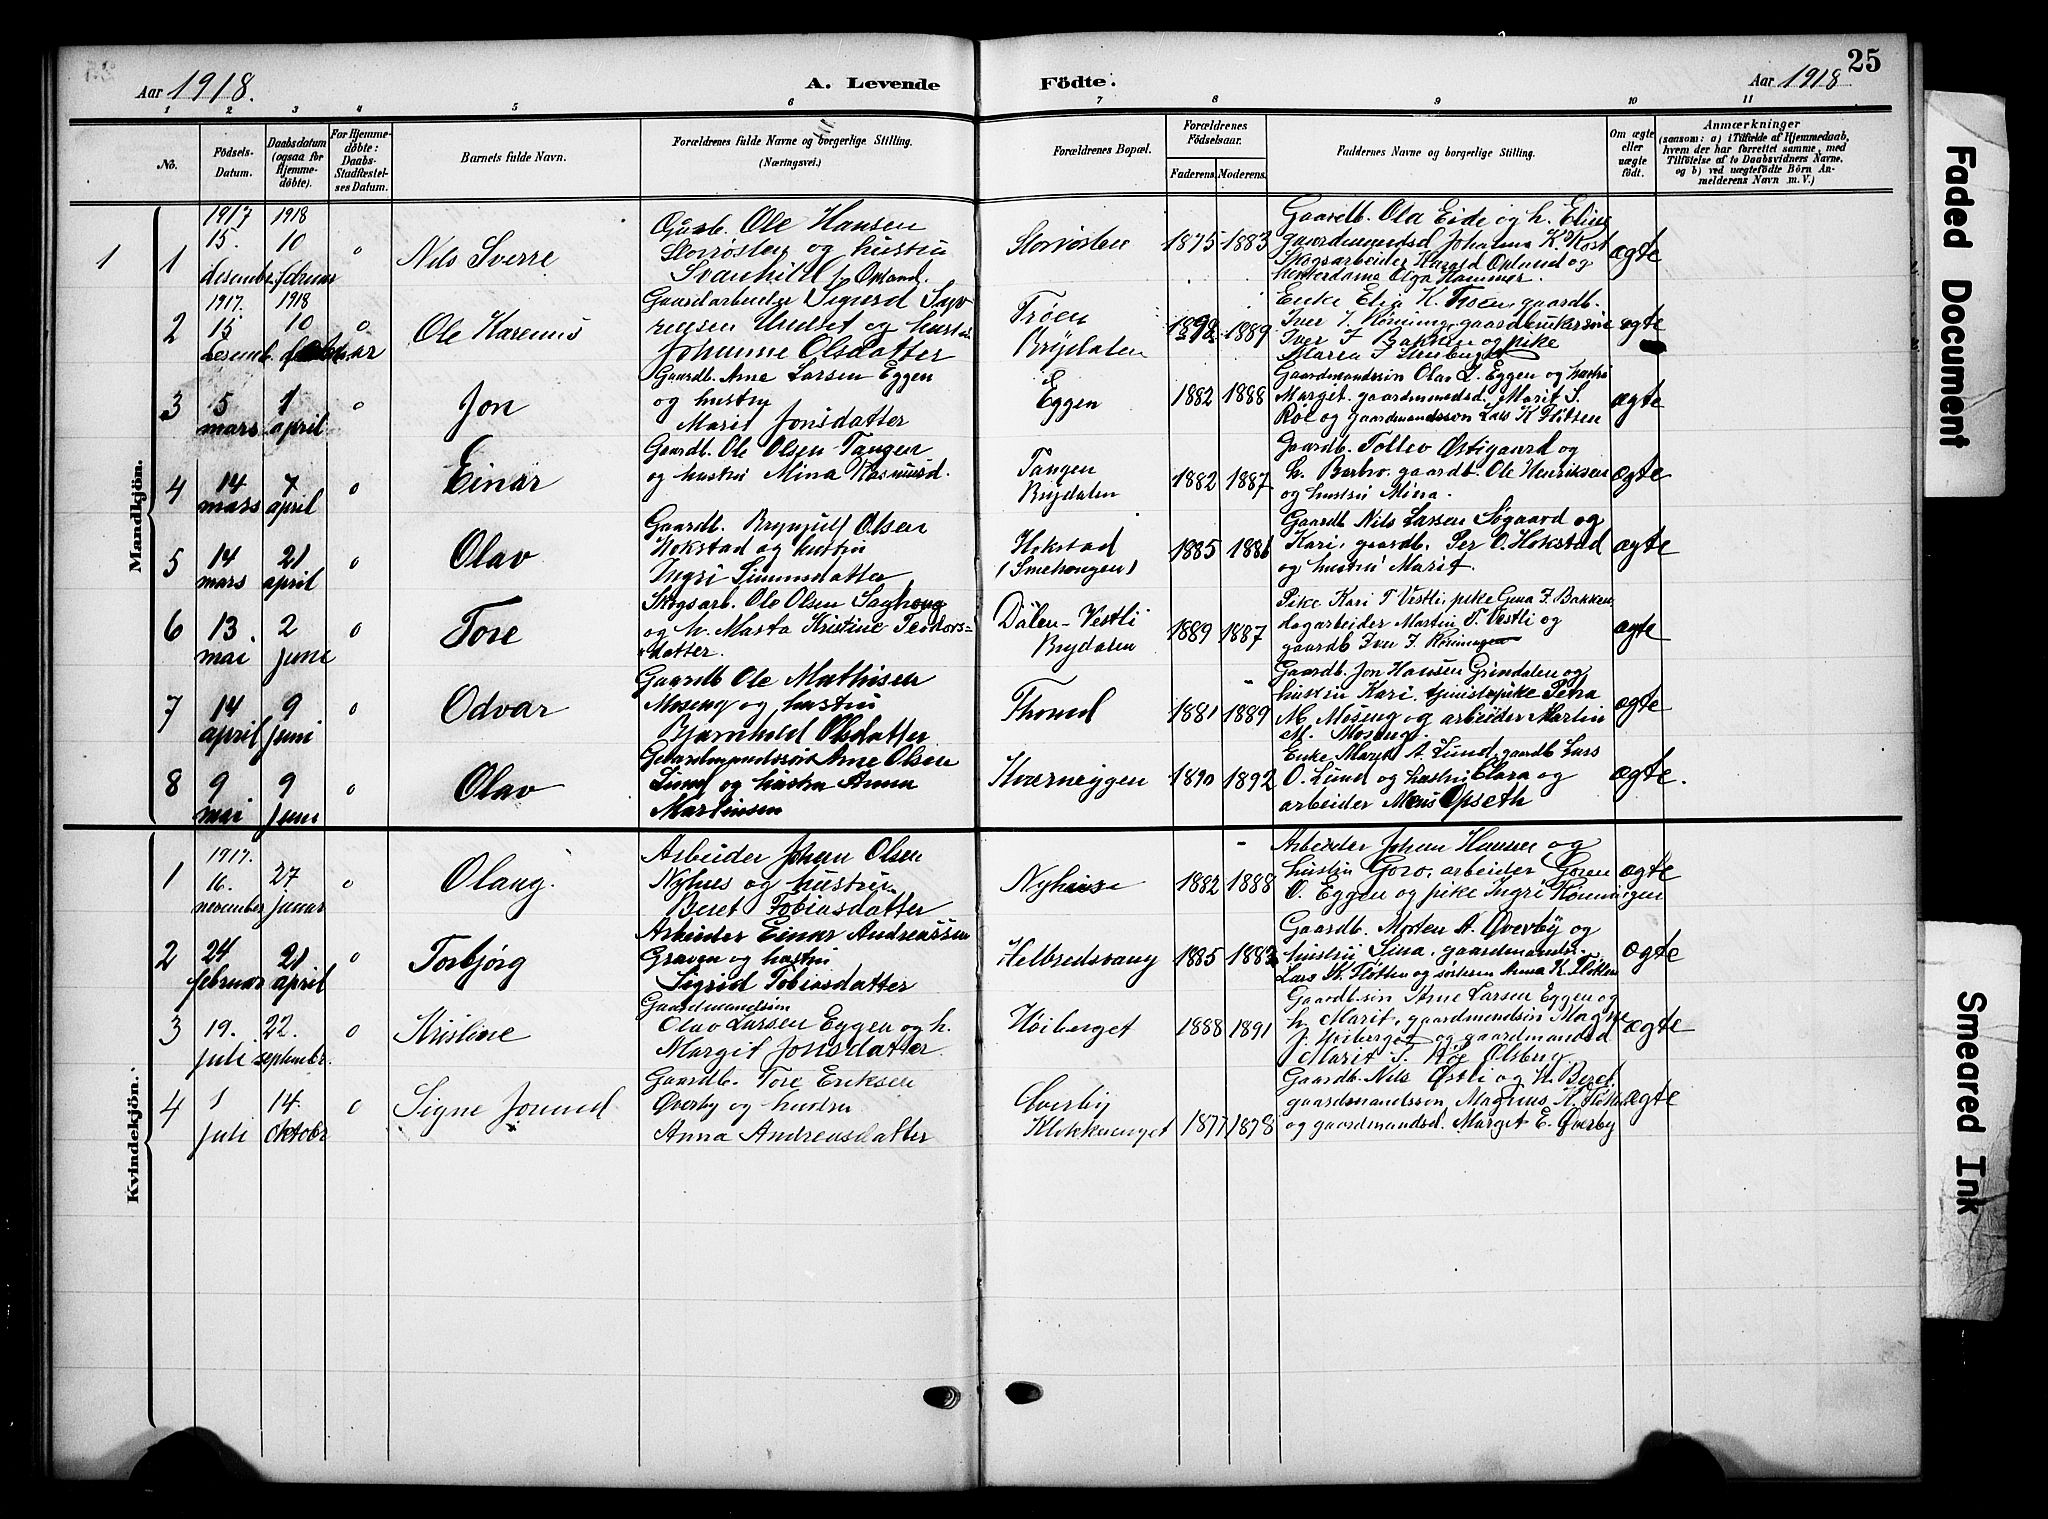 25
Aar 1918.
A. Levende
Födte.
Aar 1918
1 2 3 4 5 6 7 8 9 10 11
No.
Födsels-
Datum.
Daabsdatum
(ogsaa for
Hjemme-
döbte).
For Hjemme-
döbte:
Daabs-
Stadfæstel-
ses Datum.
Barnets fulde Navn.
Forældrenes fulde Navne og borgerlige Stilling.
(Næringsvei.)
Forældrenes Bopæl.
Forældrenes
Födselsaar.
Faderens. Moderens.
Faddernes Navne og borgerlige Stilling.
Om ægte
eller
uægte
födt.
Anmærkninger
(saasom: a) i Tilfælde af Hjemmedaab,
hvem der har forrettet samme, med
Tilföielse af to Daabsvidners Navne,
og b) ved uægtefödte Börn An-
melderens Navn m. V.)
Mandkjön.
1
1
1917
15.
desember
1918
10
februar
0
Nils Sverre
Gaardb. Ole Hansen
Storrøsten og hustru
Svanhild f. Opland.
Storrøsten
1875 1883
Gaardb. Ola Eide og h. Eline
gaardmandsd Johanna K. Røst
Skogsarbeider Harald Opland og
Olga Hammer.
ægte
2
1917.
15
desemb.
1918
10
februar
0
Ole Karenus
Gaardarbeider Sigurd
Undset og hustru
Johanne Olsdatter
Trøen
Brydalen
1892 1889
Enke Elia K. Troen, gaardb.
Iver I. Rønning, gaardbrukersøn
Iver I Bakken og pike
ægte
3
5
mars
1
april
0
Jon
Gaardb. Arne Larsen Eggen
og hustru
Marit Jonsdatter
Eggen
1882 1888
Gaardmandssøn Olav L. Eggen og hustru
Margit. gaardmandsd. Marit S.
Røe og gaardmandssøn Lars K Fløtten
ægte
4
14
mars
7
april
0
Einar
Gaardb. Ole Olsen Tangen
og hustru Mina Rasmusd.
Tangen
Brydalen
1882 1887
Gaardb. Tollev Østigaard og
h. Barbro. gaardb. Ole Henriksen
og hustru Mina.
ægte
5
14
mars
21
april
0
Olav
Gaardb. Brynjulf Olsen
Hokstad og hustru
Ingri Simensdatter
Hokstad
(Smehaugen)
1885 1886
Gaardb Nils Larsen Søgaard og
Kari, gaardb. Per O. Hokstad
og hustru Marit.
ægte
6
13.
mai
2
juni
0
Tore
Skogsarb. Ole Olsen Saghaug
og h. Marta Kristine Teodors-
datter.
Dalen-Vestli
Brydalen
1889 1887
Pike Kari T Vestli, pike Gina I. Bakken,
dagarbeider Martin T. Vestli og
gaardb Iver I. Rønningen
ægte
7
14
april
9
juni
0
Odvar
Gaardb Ole Mathisen
Moseng og hustru
Bjarnhild Olsdatter
Thomd
1881 1889
Gaardb. Jon Hansen Grindalen og
hustru Kari, tjenestepike Petra
M. Moseng og arbeider Martin
M. Moseng.
ægte
8
9
mai
9
juni
0
Olav
Gaardmandssøn Arne Olsen
Lund og hustru Anna
Martinsen
Kverneggen
1890 1892
Enke Marit A. Lund, gaardb Lars
O. Lund og hustru Clara og
arbeider Mons Opseth
ægte.
Kvindekjön.
1
1917.
16.
november
27
januar
0
Olaug.
Arbeider Johan Olsen
Nyhus og hustru
Beret Tobiasdatter
Nyhuse
1882 1888
Arbeider Johan Hansen og
hustru Goro, arbeider Gøren
O. Eggen og pike Ingri Rønningen
ægte
2
24
februar
21
april
0
Torbjørg
Arbeider Einar Andreassen
Graven og hustru
Sigrid Tobiasdatter
Helbredsvang
1885 1883
Gaardb. Morten A. Øverby og
hustru Lina, gaardmandss.
Lars K. Fløtten og søsteren Anna K. Fløtten
ægte
3
19.
juli
22.
september.
0
Kristine
Gaardmandssøn
Olav Larsen Eggen og h.
Margit Jonsdatter
Høiberget
1888 1891
Gaardb.søn Arne Larsen Eggen og
h. Marit, gaardmandsøn Magne
J. Høiberget og gaardmandsd
Marit S. Røe Olsberg
ægte
4
1
juli
14.
oktobr
0
Signe Jorund
Gaardb. Tore Eriksen
Øverby og hustru
Anna Andreasdatter
Øverby
Klokkerenget
1877 1878
Gaardb. Nils Østli og h. Beret,
gaardsmandssøn Magnus K. Fløtten
og gaardmandsd. Marget E. Øverby
ægte
Faded Document
Smeared Ink